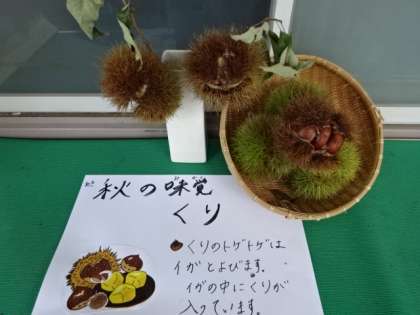 秋の味覚
くり
くりのトゲトゲは
イガとよびます。
イガの中にくりが
入っています。